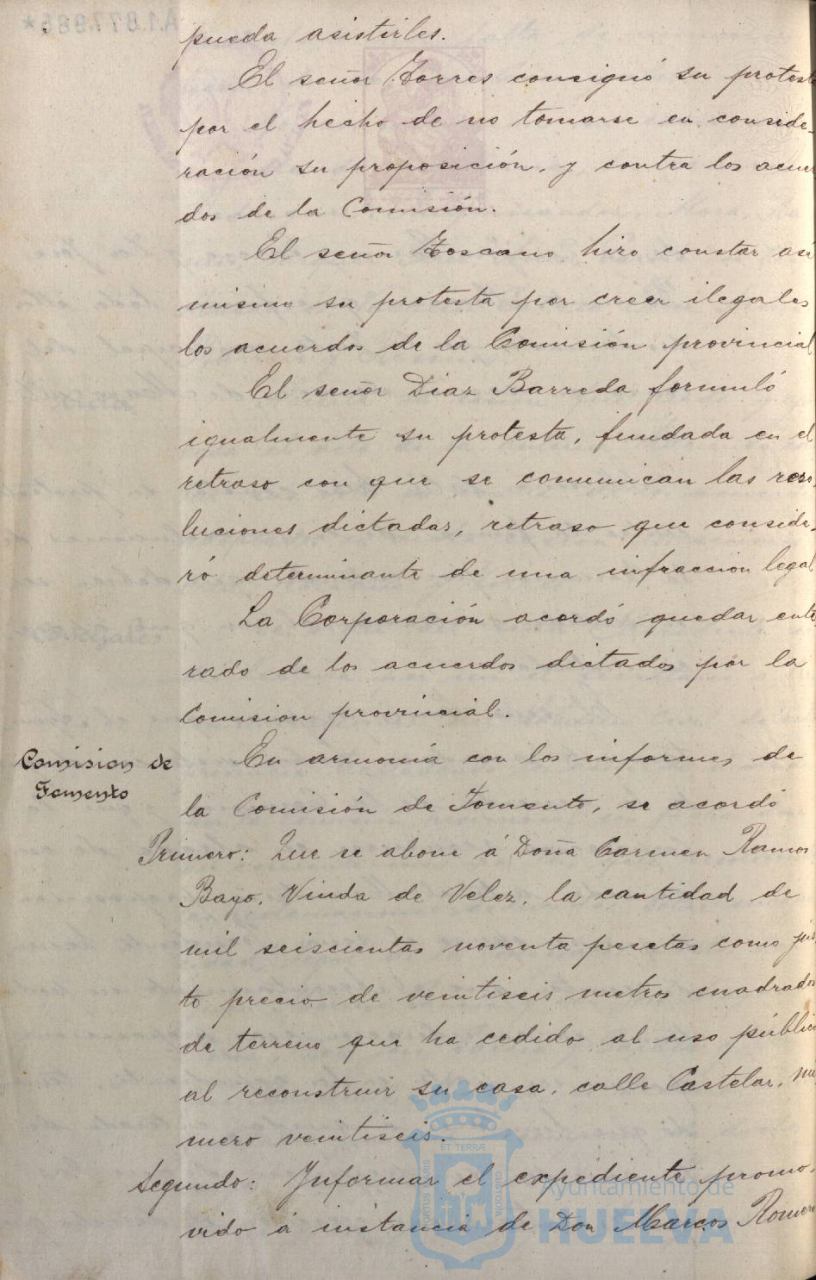 pueda asistirles.
El señor Torres consignó su protesta
por el hecho de no tomarse en conside-
ración su proposición, y contra los acuer
dos de la Comisión.
El señor Toscano hizo constar asi
mismo su protesta por creer ilegales
los acuerdos de la Comisión provincial
El señor Diaz Barreda formuló
igualmente su protesta, fundada en el
retraso con que se comunican las reso-
luciones dictadas, retraso que conside-
ró determinante de una infraccion legal
La Corporación acordó quedar ente
rado de los acuerdos dictados por la
Comision provincial.
Comision de
Fomento
En armonía con los informes de
la Comisión de Fomento, se acordó
Primero: Que se abone á Doña Carmen Ramos
Bayo, Viuda de Velez, la cantidad de
mil seiscientas noventa pesetas como jus
to precio de veintiseis metros cuadrados
de terreno que ha cedido al uso público
al reconstruir su casa, calle Castelar, nú
mero veintiseis.
Segundo: Informar el expediente promo-
vido á instancia de Don Marcos Romero
Ayuntamiento de
HUELVA